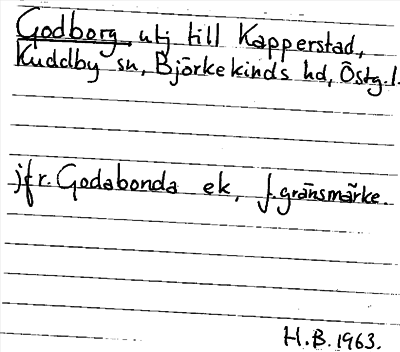 Godborg utj till Kapperstad,
Kuddby sn, Björkekinds hd, Östg.l.
jfr. Godabonda ek, f. gränsmärke.
H.B. 1963.